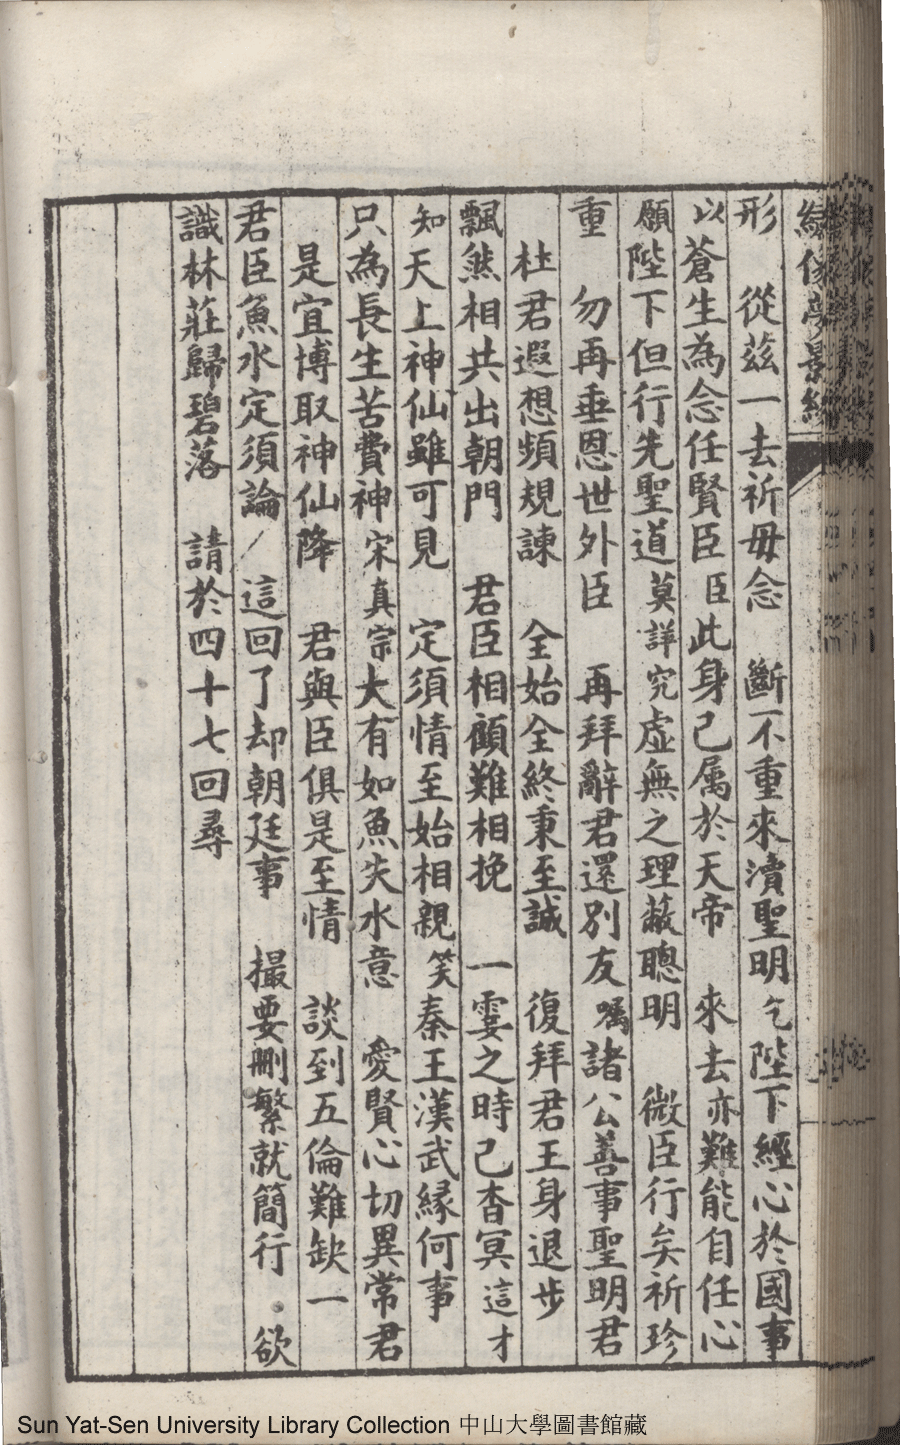 繡像夢影緣
形　從茲一去祈毋念　斷不重來瀆聖明乞陛下經心於國事
以蒼生為念任賢臣臣此身已属於天帝　來去亦難能自任心
願陛下但行先聖道莫詳究虛無之理蔽聰明　微臣行矣祈珍
重　勿再垂恩世外臣　再拜辭君還別友嘱諸公善事聖明君
杜君遐想頻規諫　全始全終秉至誠　復拜君王身退步
飄然相共出朝門　君臣相顧難相挽　一霎之時已杳冥這才
知天上神仙雖可見　定須情至始相親笑秦王漢武緣何事
只為長生苦費神宋真宗大有如魚失水意　愛賢心切異常君
是宜博取神仙降　君與臣俱是至情　談到五倫難缺一
君臣魚水定須論／這回了却朝廷事　撮要刪繁就簡行　欲
識林莊歸碧落　請於四十七回尋
Sun Yat-Sen University Library Collection 中山大學圖書館藏